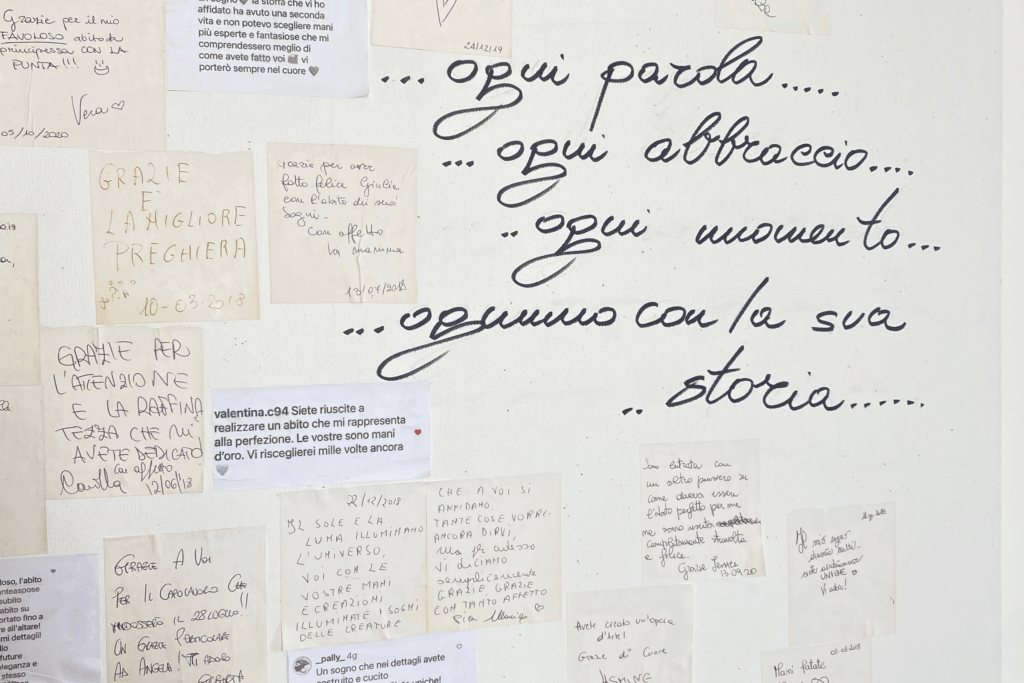 Grazie per il mio
FAVOLOSO abito da
principessa CON LA
PUNTA!!!
Vera
05/10/2020
la stoffa che vi ho
affidato ha avuto una seconda
vita e non potevo scegliere mani
più esperte e fantasiose che mi
comprendessero meglio di
come avete fatto voi vi
porterò sempre nel cuore
24/12/19
... ogni parola.....
... ogni abbraccio....
.. ogni momento...
...ognuno con la sua
.. storia......
GRAZIE
È
LA MIGLIORE
PREGHIERA
10-03-2018
Grazie per aver
fatto felice Giulia
con l'abito dei suoi
Sogni.
Con affetto
la mamma
13/07/2018
GRAZIE PER
L'ATTENZIONE
E LA RAFFINA
TEZZA CHE MI
AVETE DEDICATO
Con affetto
Camilla 12/06/18
valentina.c94 Siete riuscite a
realizzare un abito che mi rappresenta
alla perfezione. Le vostre sono mani
d'oro. Vi risceglierei mille volte ancora
21/12/2018
IL SOLE E LA
LUNA ILLUMINANO
L'UNIVERSO,
VOI CON LE
VOSTRE MANI
E CREAZIONI
ILLUMINATE I SOGNI
DELLE CREATURE
CHE A VOI SI
AFFIDANO.
TANTE COSE VORREI
ANCORA DIRVI,
ma per adesso
VI DICIAMO
semplicemente
GRAZIE, GRAZIE
CON TANTO AFFETTO
Pia
Sono entrata con
un altro pensiero su
come doveva essere
l'abito perfetto per me
ne sono uscita
completamente stravolta
e felice.
Grazie
13.09.20
Il mio sogno
UNICHE
GRAZIE A VOI
PER IL CAPOLAVORO CHE
INDOSSERÒ IL 28 LUGLIO!!
UN GRAZIE PARTICOLARE
AD ANGELA! TI ADORO
loso, l'abito
subito
abito su
portato fino a
e all'altare!
mi dettagli!
future
eleganza e
stesso
_pally_ 4g
Un sogno che nei dettagli avete
costruito e cucito
uniche!
Avete creato un'opera
d'arte!
Grazie di Cuore
Mani fatate